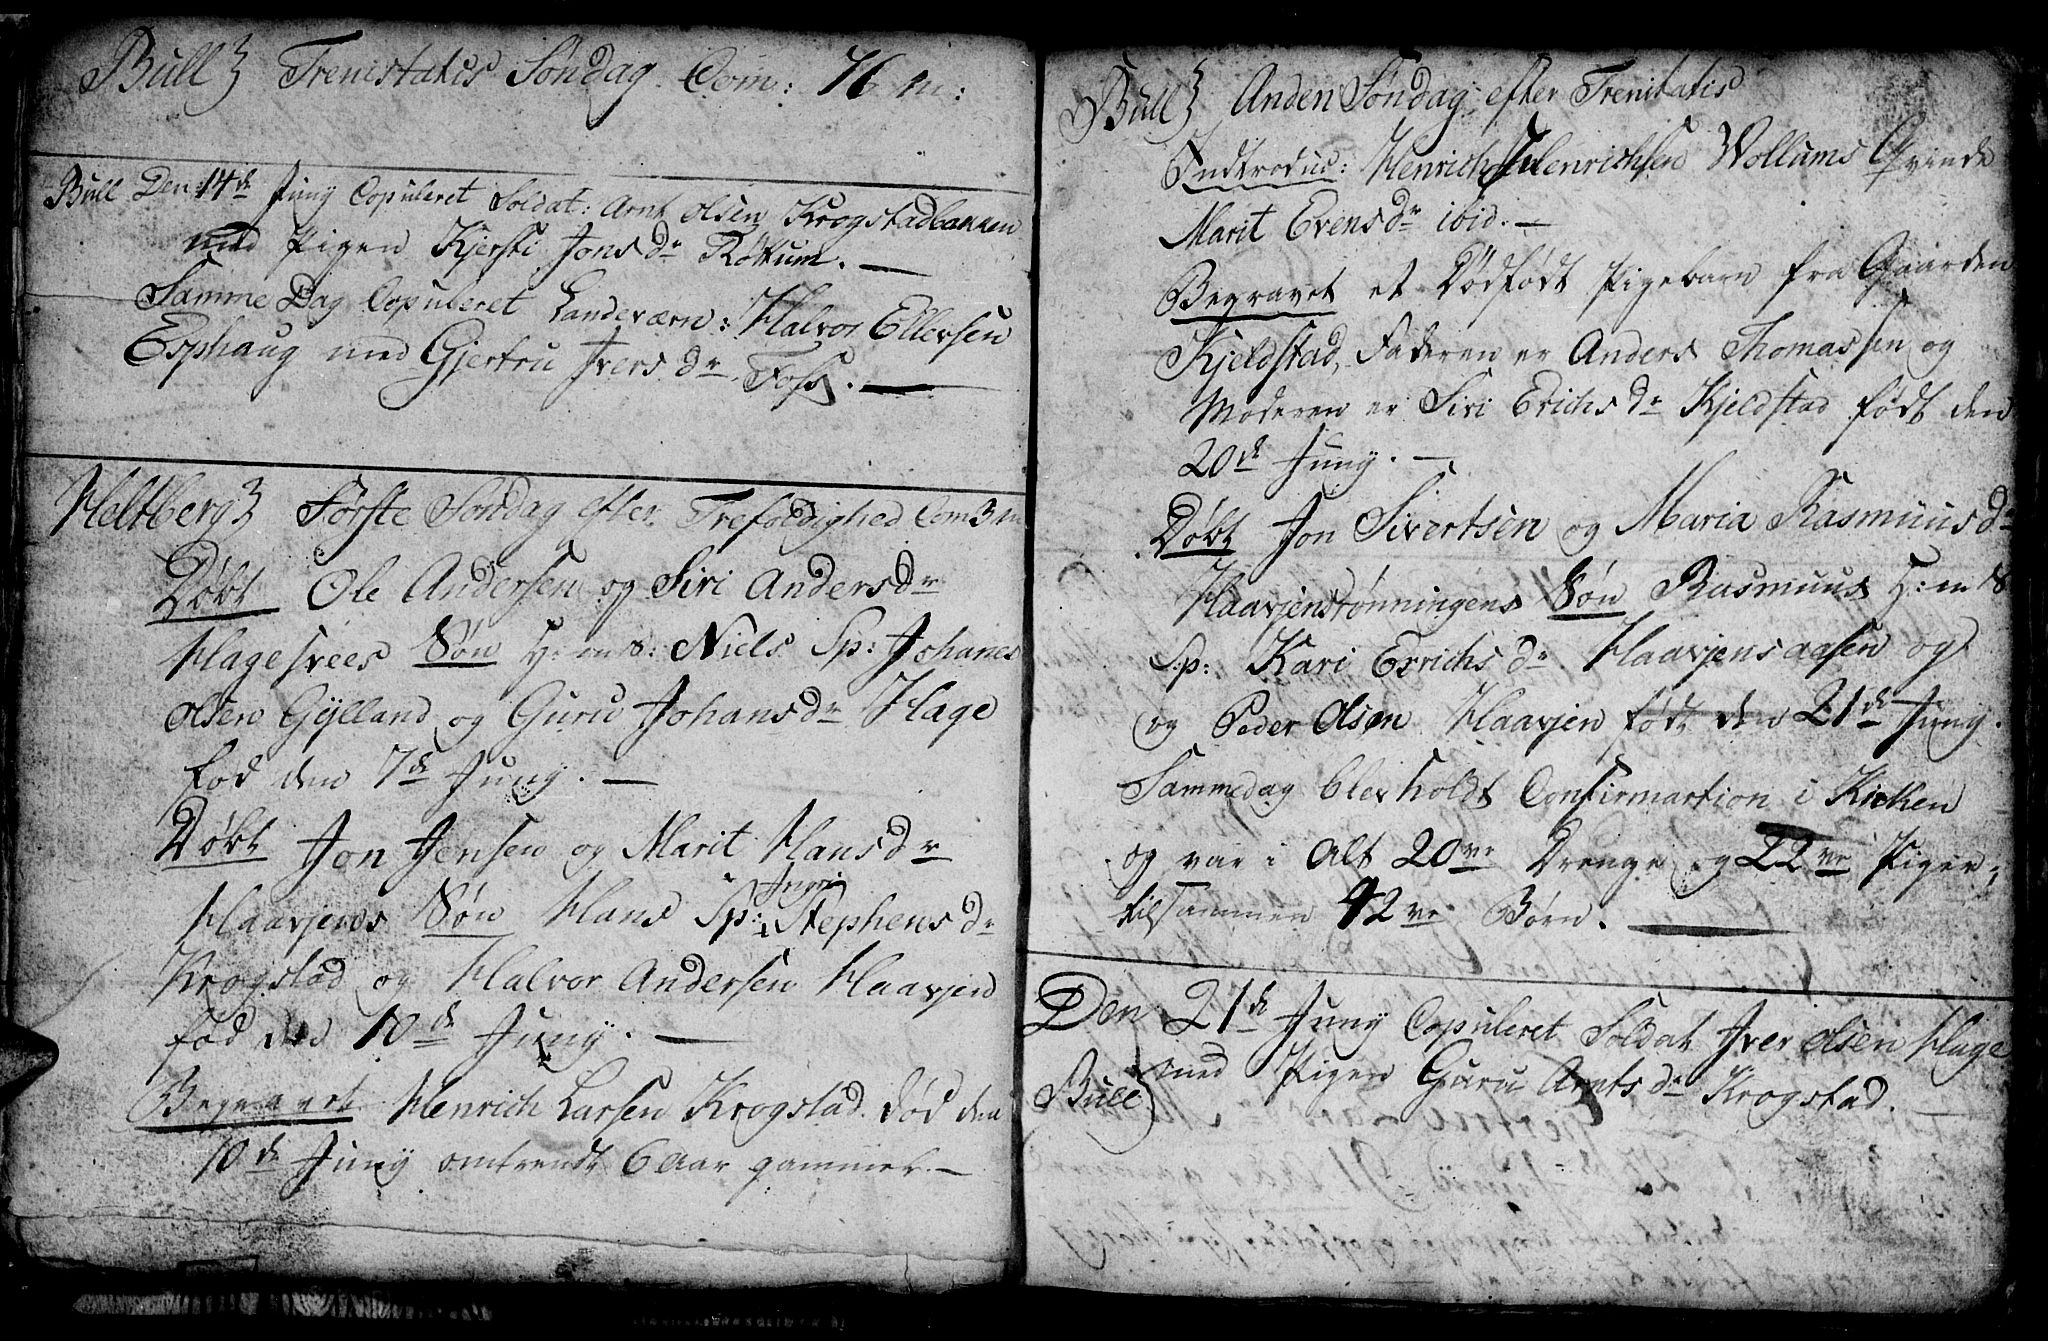 Bull} Trenistatis Søndag Com: 76 m:
Bull Den 14de Juny Copuleret Soldat: Arnt Olsen Krogstadbakken
med Pigen Kjersti Jonsdr Röttum. —
Samme Dag Copuleret Landeværn: Halvor Ellevsen
Esphaug med Gjertru Iversdr Foss. —
Heltberg} Første Søndag efter Trefoldighed Com 3 m
Døbt Ole Andersen og Siri Andersdr
Hagesvees Søn H: m 8: Niels Sp: Johanes
Olsen Gylland og Guru Johansdr Hage
fod den 7de Juny. —
Døbt Jon Jensen og Marit Hansdr
Ingri
Haavjens Søn Hans Sp: Stephensdr
Krogstad og Halvor Andersen Haavjen
fod den 10de Juny. —
Begravet Henrich Larsen Krogstad. død den
10de Juny omtrendt 6 Aar gammel. —
Bull} Anden Søndag efter Trenitatis
Indtroduc: Henrich Henrichsen Wollums Qvinde
Marit Evensdr ibid. —
Begravet et Dødfødt Pigebarn fra Gaarden
Kjeldstad, Faderen er Anders Thomassen og
Moderen er Siri Erichsdr Kjeldstad født den
20de Juny. —
Døbt Jon Sivertsen og Maria Rasmuusdr
Haavjensrønningens Søn Rasmuus H: m 8
Sp: Kari Errichsdr Haavjensaasen og
og Peder Olsen Haavjen født den 21de Juny.
Sammedag blev holdt Confirmartion i Kirken
og var i Alt 20ve Drenge og 22ve Piger,
tilsammen 42ve Børn. —
Den 21de Juny Copuleret Soldat Iver Olsen Hage
Bull} med Pigen Guru Arntsdr Krogstad. —